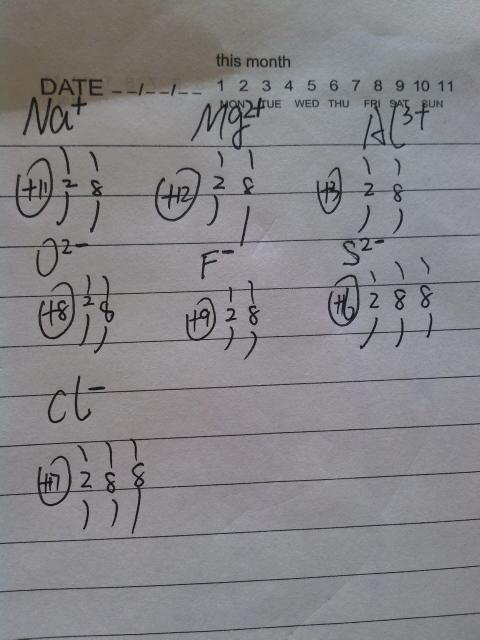 this month
DATE __/__/__ 1 2 3 4 5 6 7 8 9 10 11
MON TUE WED THU FRI SAT SUN
Na⁺ Mg²⁺ Al³⁺
+11 2 8 +12 2 8 +13 2 8
O²⁻ F⁻ S²⁻
+8 2 8 +9 2 8 +16 2 8 8
Cl⁻
+17 2 8 8